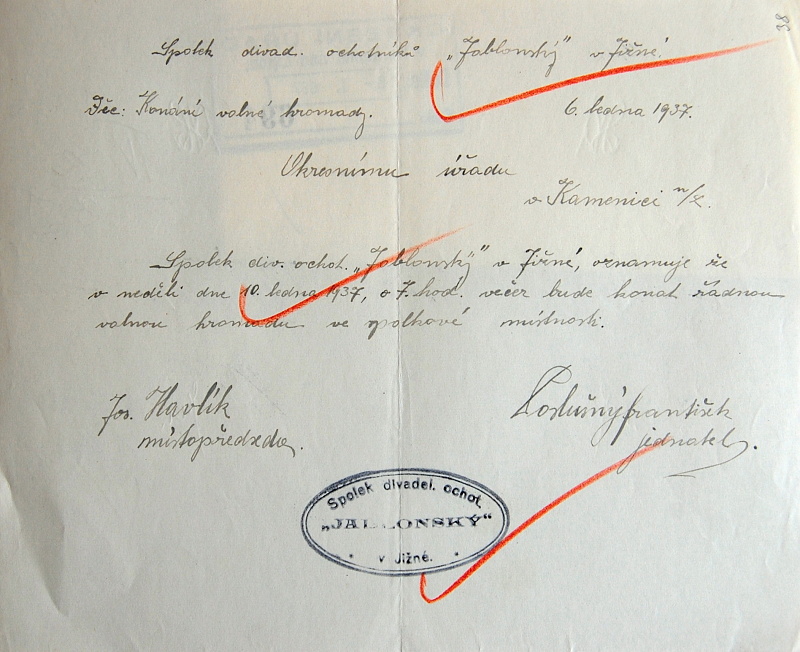 38
Spolek divad. ochotníků „Jablonský" v Jižné.
Věc: Konání valné hromady.
6. ledna 1937.
Okresnímu úřadu
v Kamenici n/L.
Spolek div. ochot. „Jablonský" v Jižné, oznamuje že
v neděli dne 10. ledna 1937, o 7. hod. večer bude konat řádnou
valnou hromadu ve spolkové místnosti.
Jos. Havlík
místopředseda.
Poslušný František
jednatel.
Spolek divadel. ochot.
„JABLONSKÝ“
v Jižné.